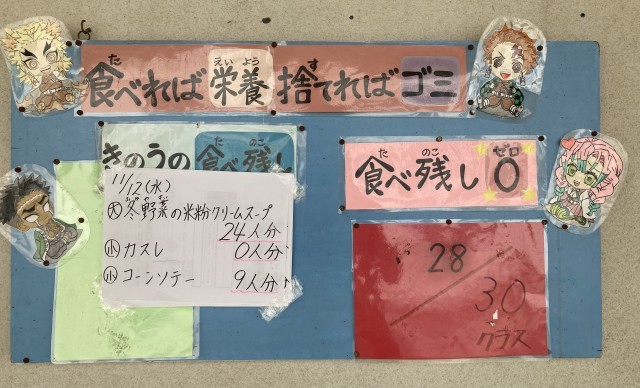 食べれば栄養 捨てればゴミ
きのうの食べ残し
11/12(水)
大 冬野菜の米粉クリームスープ
24人分
小 カスレ
0人分
小 コーンソテー
9人分
食べ残し0
28/30
クラス